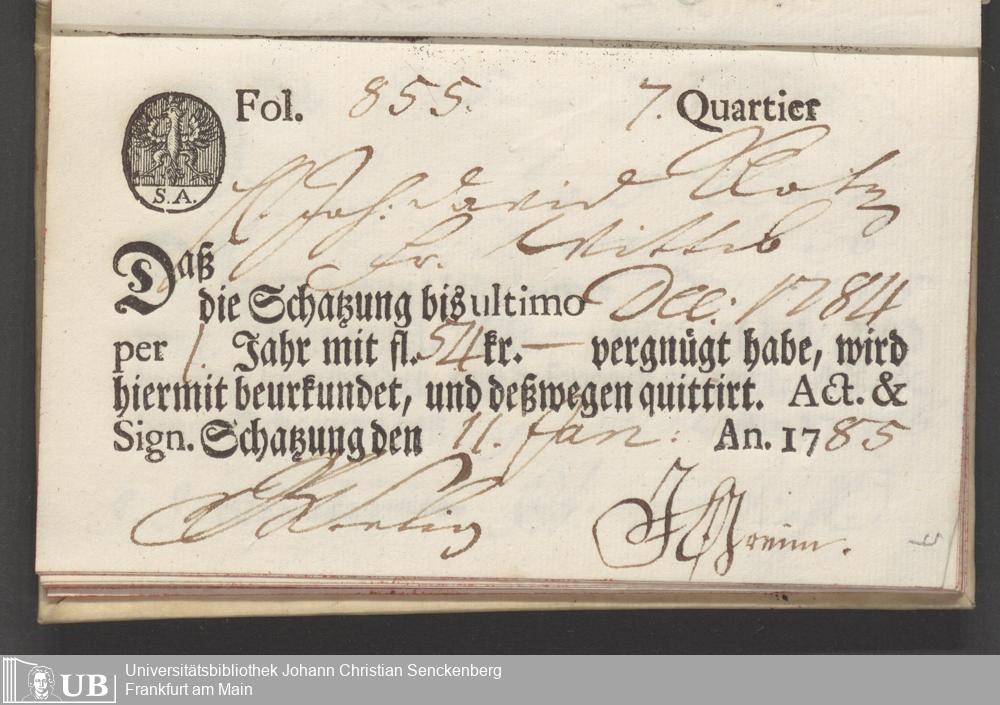 Fol. 855. 7. Quartier
S.A.
H. Joh: David Klotz
fr. Wittib
Daß
die Schatzung bis ultimo Dec: 1784
per 1. Jahr mit fl. 54 kr. — vergnügt habe, wird
hiermit beurkundet, und deßwegen quittirt. Act. &
Sign. Schatzung den 11. Jan: An. 1785
UB
Universitätsbibliothek Johann Christian Senckenberg
Frankfurt am Main